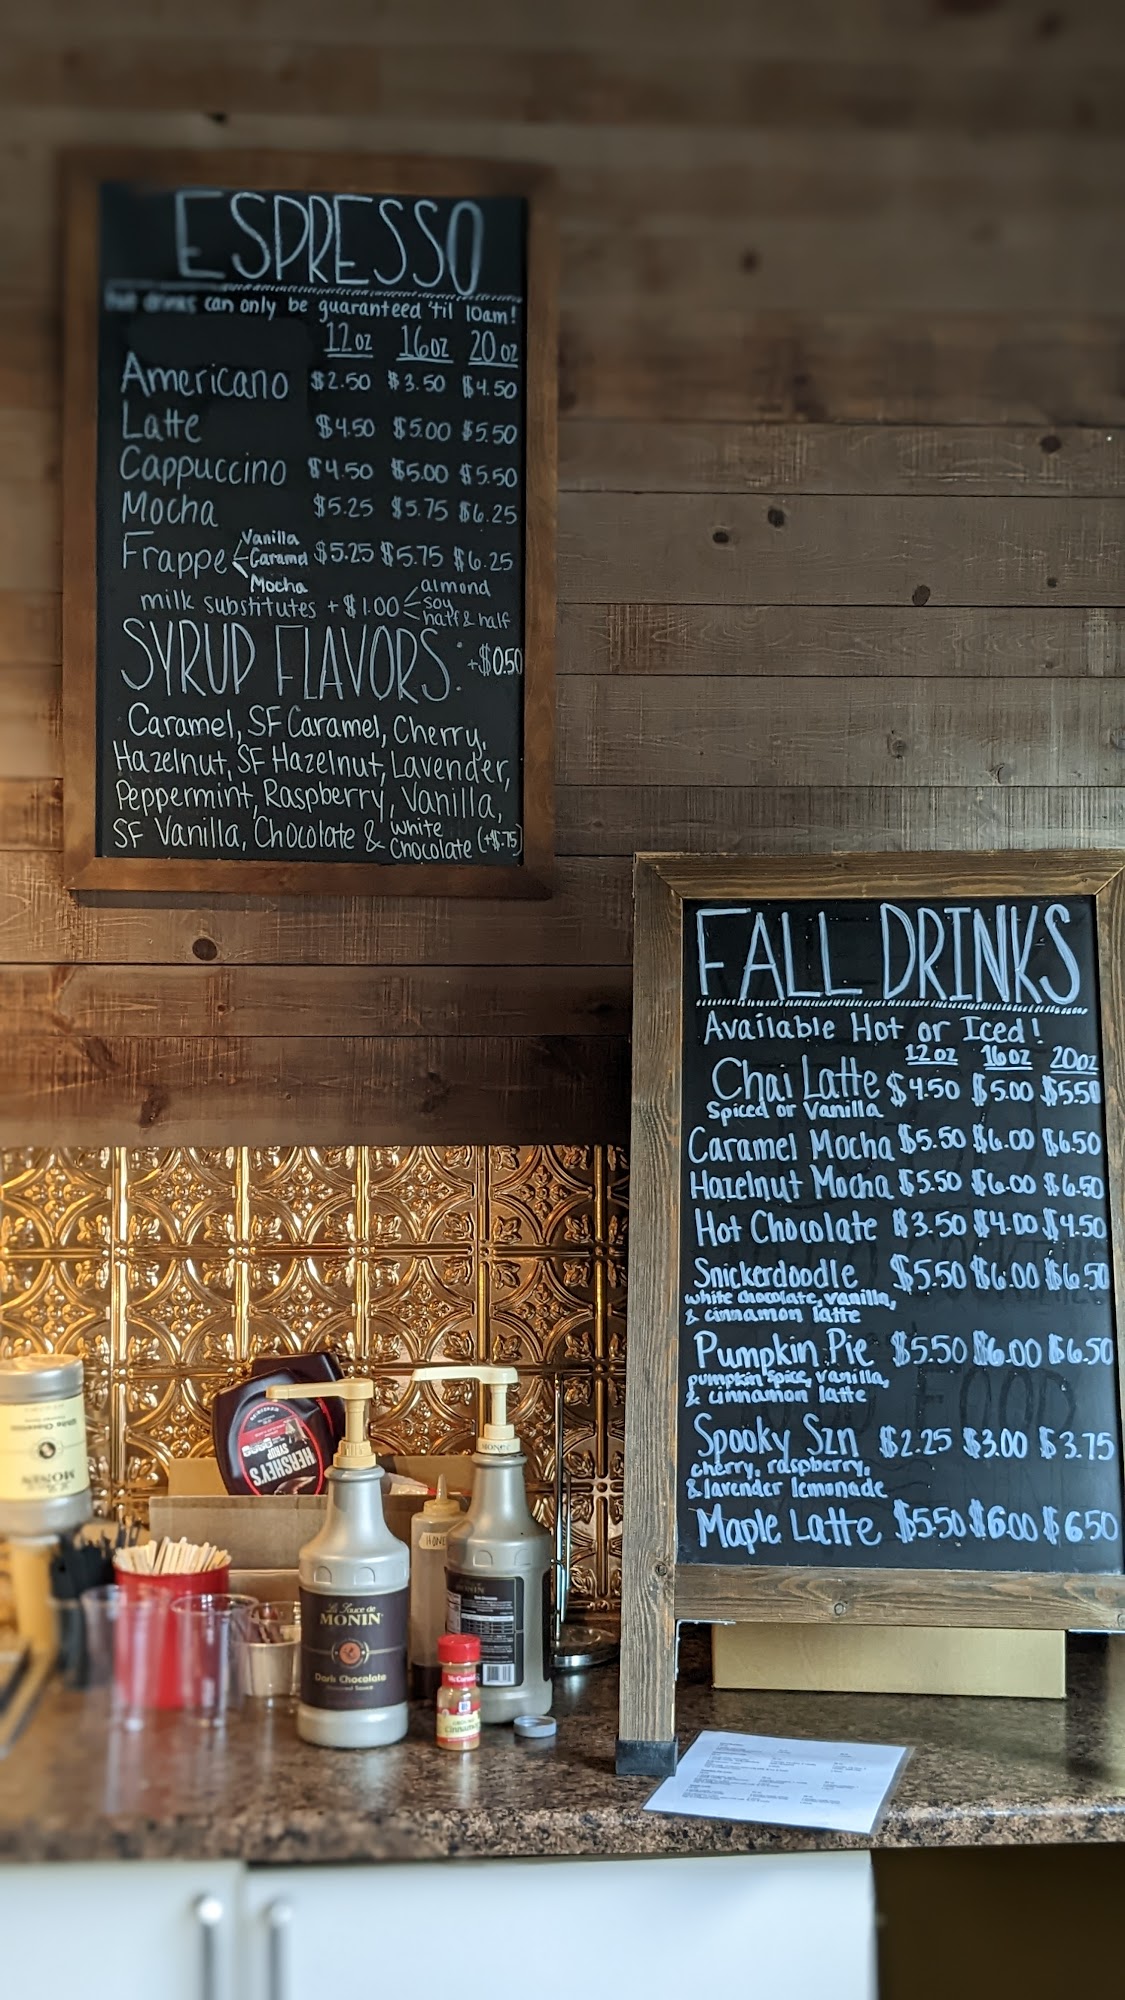 ESPRESSO
hot drinks can only be guaranteed 'til 10am!
12oz 16oz 20oz
Americano $2.50 $3.50 $4.50
Latte $4.50 $5.00 $5.50
Cappuccino $4.50 $5.00 $5.50
Mocha $5.25 $5.75 $6.25
Frappe Vanilla Caramel Mocha $5.25 $5.75 $6.25
milk substitutes +$1.00 almond soy half & half
SYRUP FLAVORS: +$0.50
Caramel, SF Caramel, Cherry,
Hazelnut, SF Hazelnut, Lavender,
Peppermint, Raspberry, Vanilla,
SF Vanilla, Chocolate & White Chocolate (+$.75)
FALL DRINKS
Available Hot or Iced!
12oz 16oz 20oz
Chai Latte $4.50 $5.00 $5.50
Spiced or Vanilla
Caramel Mocha $5.50 $6.00 $6.50
Hazelnut Mocha $5.50 $6.00 $6.50
Hot Chocolate $3.50 $4.00 $4.50
Snickerdoodle $5.50 $6.00 $6.50
white chocolate, vanilla,
& cinnamon latte
Pumpkin Pie $5.50 $6.00 $6.50
pumpkin spice, vanilla,
& cinnamon latte
Spooky Szn $2.25 $3.00 $3.75
cherry, raspberry,
& lavender lemonade
Maple Latte $5.50 $6.00 $6.50
White Chocolate
MONIN
HERSHEY'S
SYRUP
HONEY
MONIN
La Sauce de
MONIN
Dark Chocolate
McCormick
Cinnamon